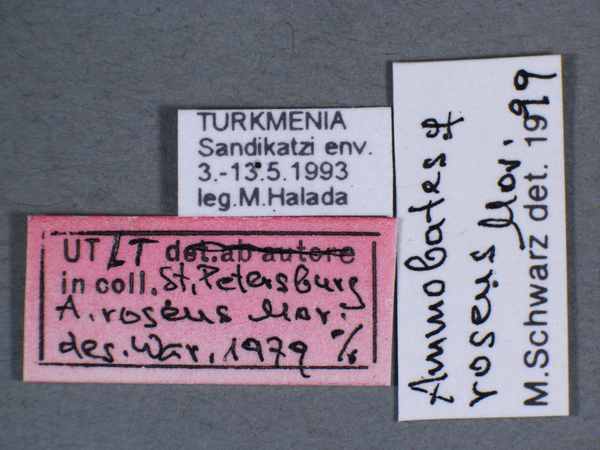 TURKMENIA
Sandikatzi env.
3.-13.5.1993
leg.M.Halada
UT LT det.ab autore
in coll. St. Petersburg
A. roseus Mor.
des. War. 1979 %
Ammobates ♀
roseus Mor.
M.Schwarz det. 1999